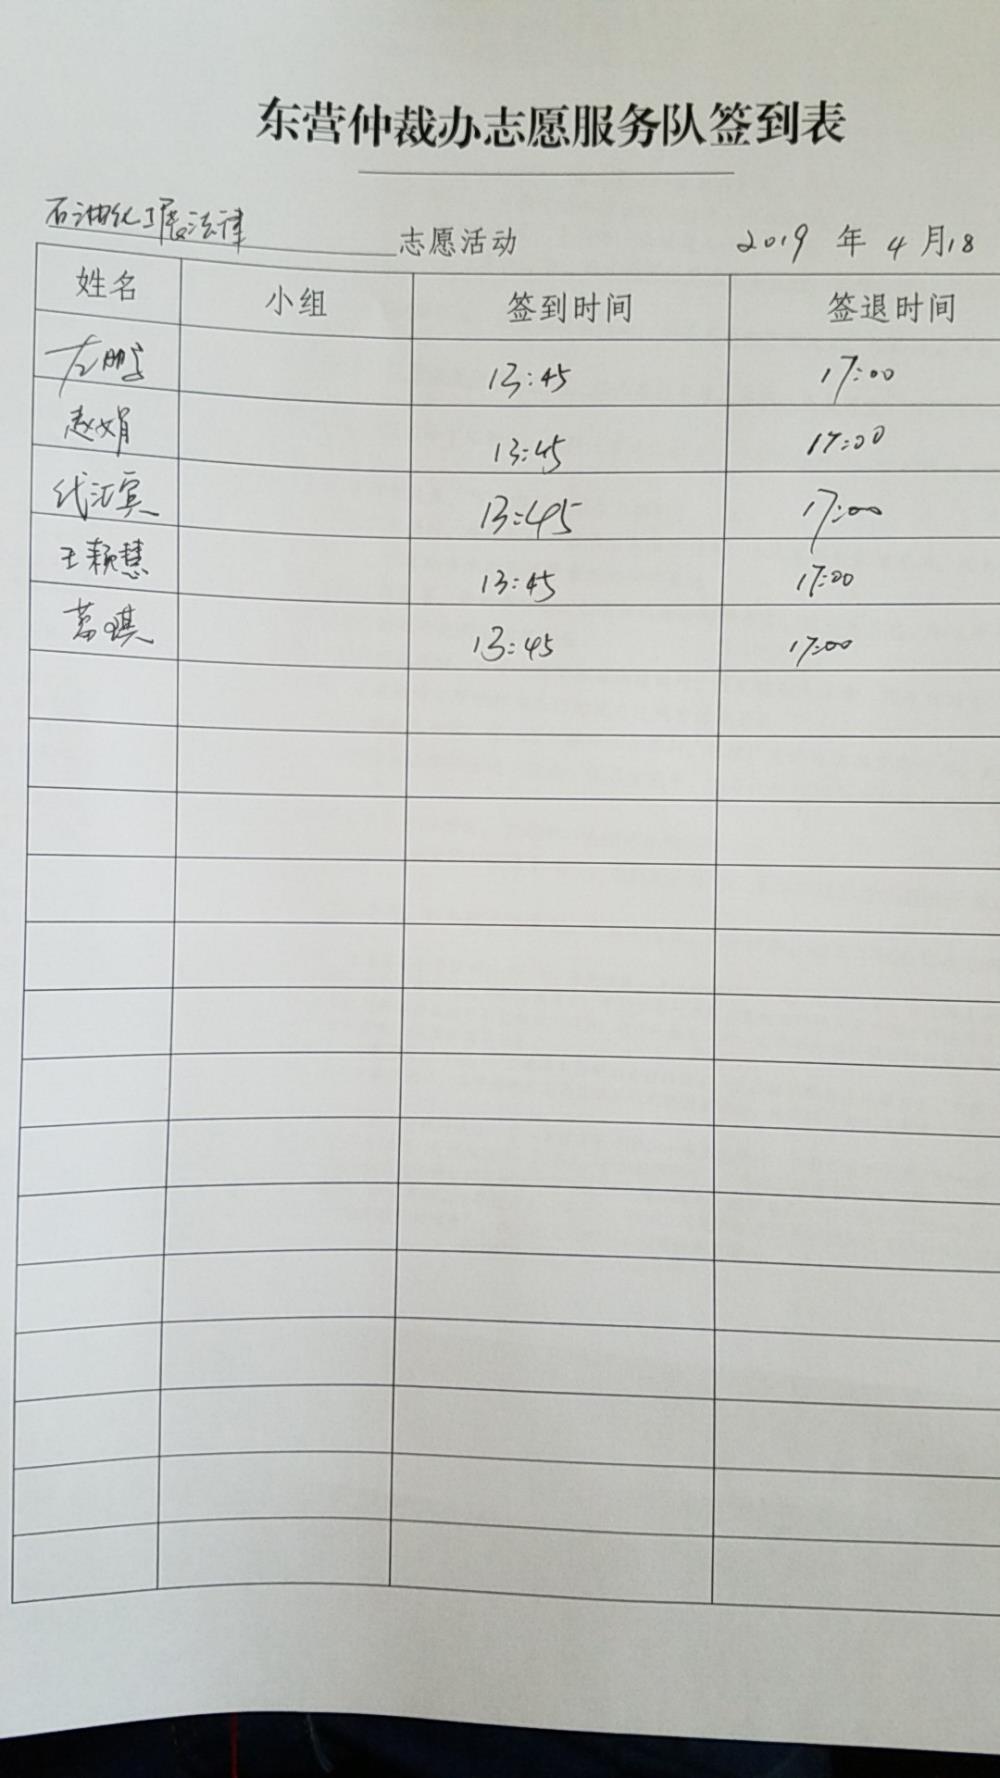 东营仲裁办志愿服务队签到表
石油化工展法律 志愿活动 2019 年 4 月18
姓名 小组 签到时间 签退时间
左鹏 13:45 17:00
赵娟 13:45 17:00
代汇宾 13:45 17:00
王颖慧 13:45 17:00
琪 13:45 17:00